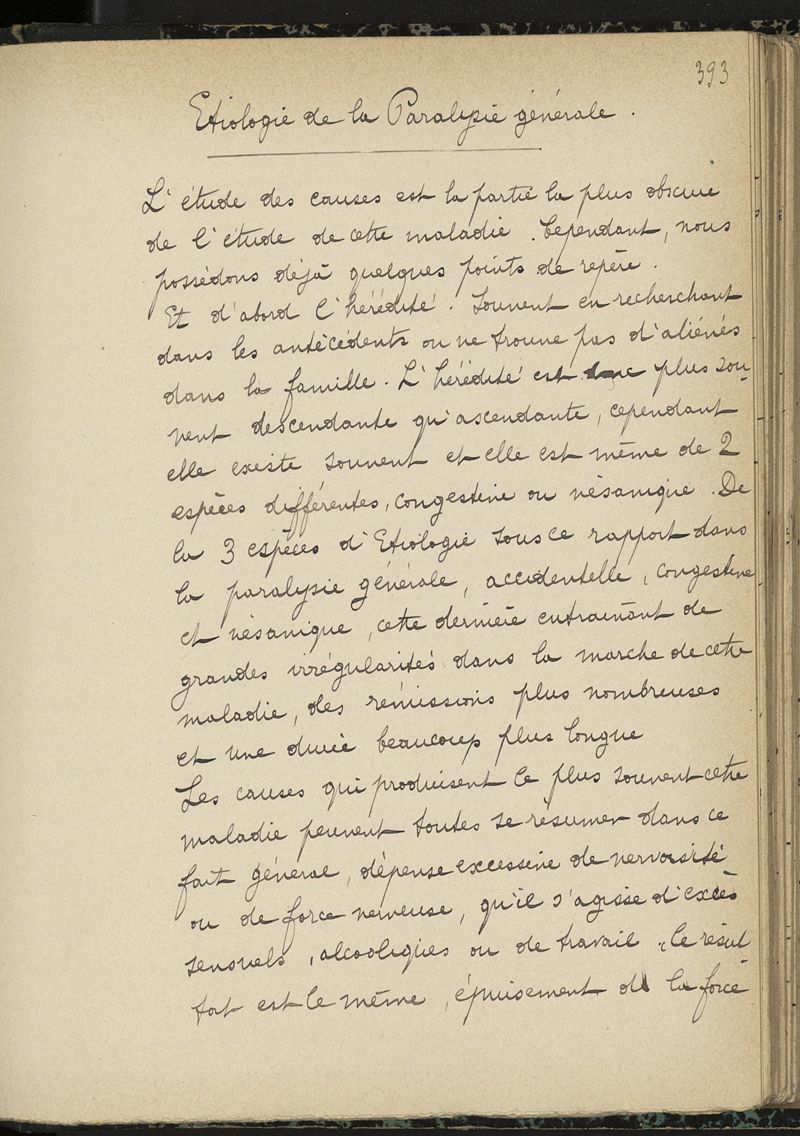 393
Etiologie de la Paralysie générale.
L'étude des causes est la partie la plus obscure
de l'étude de cette maladie. Cependant, nous
possédons déjà quelques points de repère.
Et d'abord l'hérédité. Souvent en recherchant
dans les antécédents on ne trouve pas d'aliénés
dans la famille. L'hérédité est plus sou-
vent descendante qu'ascendante, cependant
elle existe souvent et elle est même de 2
espèces différentes, congestive ou vésanique. De
la 3 espèces d'Etiologie sous ce rapport dans
la paralysie générale, accidentelle, congestive
et vésanique, cette dernière entrainant de
grandes irrégularités dans la marche de cette
maladie, des rémissions plus nombreuses
et une durée beaucoup plus longue
Les causes qui produisent le plus souvent cette
maladie peuvent toutes se résumer dans ce
fait général, dépense excessive de nervosité
ou de force nerveuse, qu'il s'agisse d'excès
sensuels, alcooliques ou de travail, le résul-
tat est le même, épuisement de la force